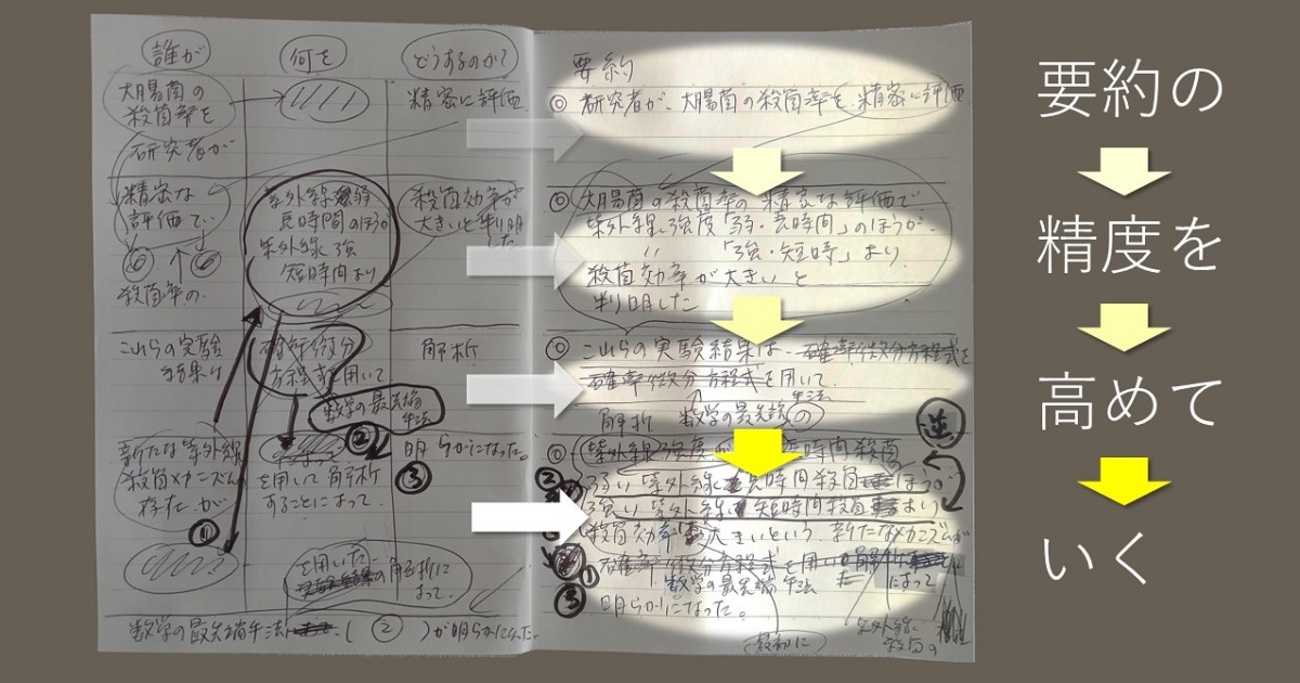 誰が
何を
どうするのか?
大腸菌の
殺菌率を
研究者が
精密に評価
精密な
評価で
殺菌率の
紫外線 弱
長時間のほうが
紫外線 強
短時間より
殺菌効率が
大きいと判明
した
これらの実験
結果は
確率微分
方程式を用いて
解析
数学の最先端
手法
②
新たな紫外線
殺菌メカニズム
存在が
①
を用いて解析
することによって
明らかになった。
③
を用いた
の解析に
よって.
数学の最先端手法 ( ② )が明らかになった.
要約
◎ 研究者が、大腸菌の殺菌率を 精密に評価
◎ 大腸菌の殺菌率の精密な評価で
紫外線強度「弱・長時間」のほうが、
〃 「強・短時」より
殺菌効率が大きいと
判明した
これらの実験結果は 確率微分方程式を
確率微分方程式を用いて
手法
解析 数学の最先端の
紫外線強度が 時間殺菌
逆
②
弱い紫外線 長時間殺菌 ほうが
強い紫外線 短時間殺菌 より
殺菌効率 大きいという、新たなメカニズムが
① 確率微分方程式を用い 解析
数学の最先端手法
によって
③ 明らかになった。
最初に
紫外線
殺菌の
要約の
精度を
高めて
いく